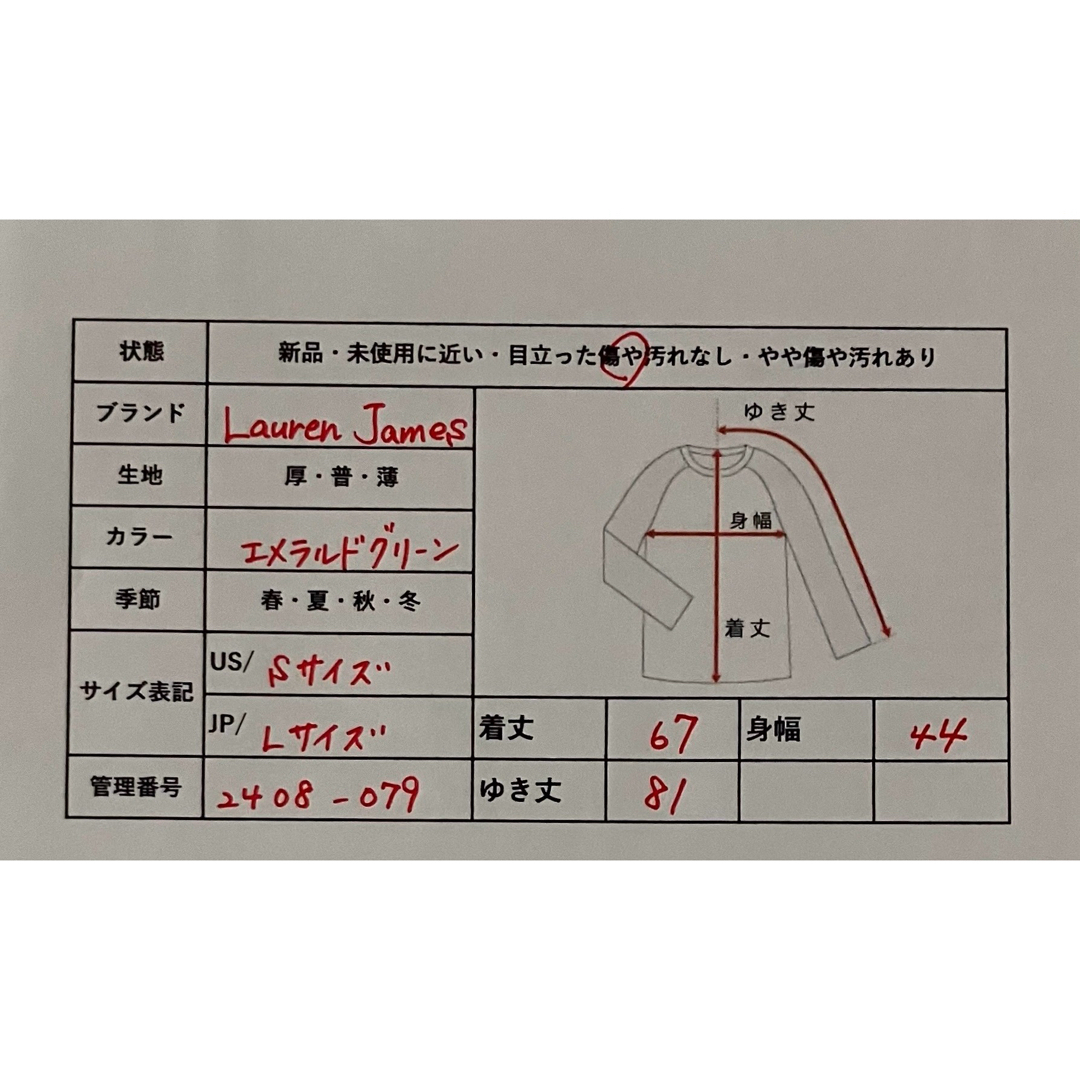 状態 新品・未使用に近い・目立った傷や汚れなし・やや傷や汚れあり
ブランド Lauren James
ゆき丈
生地 厚・普・薄
身幅
カラー エメラルドグリーン
季節 春・夏・秋・冬
着丈
サイズ表記 US/ Sサイズ
JP/ Lサイズ 着丈 67 身幅 44
管理番号 2408-079 ゆき丈 81